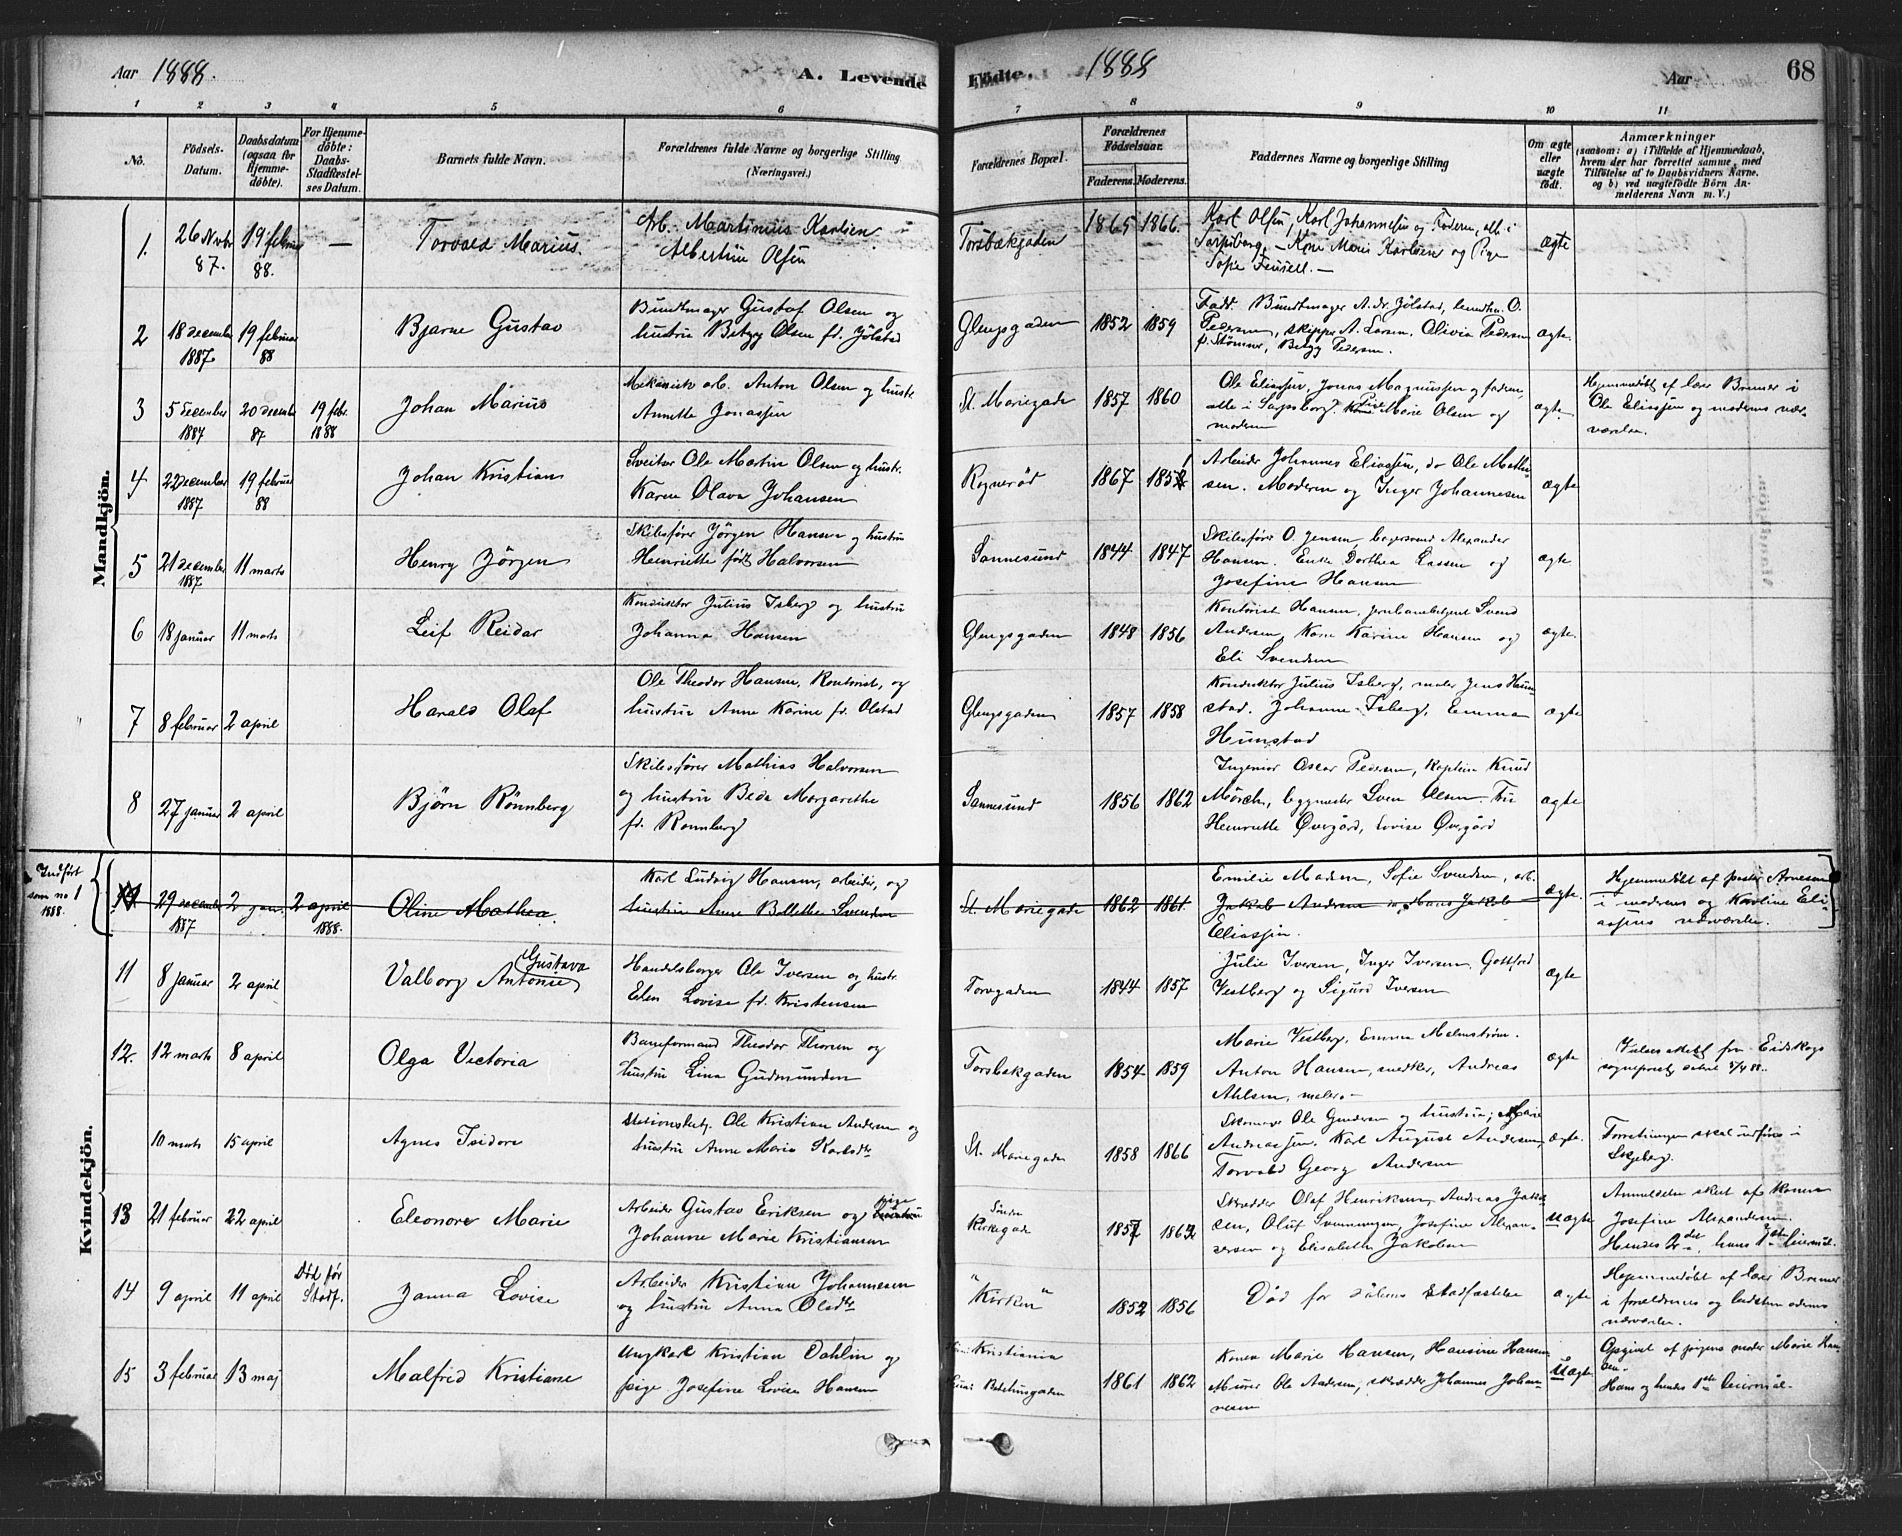 Aar 1888. A. Levende
Födte. 1888 Aar 68
1 2 3 4 5 6 7 8 9 10 11
No.
Födsels-Datum.
Daabsdatum (ogsaa for Hjemme-döbte).
For Hjemme-döbte: Daabs-Stadfæstelses Datum.
Barnets fulde Navn.
Forældrenes fulde Navne og borgerlige Stilling (Næringsvei.)
Forældrenes Bopæl.
Forældrenes Födselsaar.
Faderens. Moderens.
Faddernes Navne og borgerlige Stilling
Om ægte eller uægte födt.
Anmærkninger
(saasom: a) i Tilfælde af Hjemmedaab, hvem der har forrettet samme, med Tilföielse af to Daabsvidners Navne, og b) ved uægtefödte Börn Anmelderens Navn m. V.)
Mandkjön.
1. 26 Nvbr 87. 19 februar 88. — Torvald Marius.
Arb. Martinius Karlsen
Albertine Olsen
Torsbækgaden 1865 1866
Karl Olsen, Karl Johannesen og Faderen, alle i
Sarpsborg, — Kone Marie Karlsen og Pige
Sofie
ægte
2 18 december 1887 19 februar 88 Bjarne Gustav
Bundtmager Gustaf Olsen og
hustru Betzy Olsen fd. Jölstad
Glengsgaden 1852 1859
Fadd. Bundtmager A. Jölstad, O.
Pedersen, skipper A. Larsen, Olivia Pedersen
f. Betzy Pedersen.
ægte.
3 5 december 1887 20 december 87 19 febr. 1888 Johan Marius
Mekanisk arb. Anton Olsen og hustr.
Annette Jonassen
St. Mariegade 1857 1860
Ole Eliassen, Jonas Magnussen og faderen,
alle i Sarpsborg. Pige Marie Olsen og
moderen
ægte.
Hjemmedöbt af lærer Bremer i
Ole Eliassen og moderens nær-
værelse.
4 22 december 1887 19 februar 88 Johan Kristian
Sveitser Ole Martin Olsen og hustr.
Karen Olava Johansen
Rognerød 1867
Arbeider Johannes Eliassen, do Ole Mathi-
sen. Moderen og Inger Johannesen
ægte
5 21 december 1887 11 marts Henry Jörgen
Skibsfører Jörgen Hansen og hustru
Henriette född Halvorsen
Sannesund 1844 1847
Skibsfører O. Jensen, Alexander
Hansen. Enke Dorthea Lassen og
Josefine Hansen
ægte
6 18 januar 11 marts Leif Reidar
Konduktør Julius Isberg og hustru
Johanna Hansen
Glengsgaden 1848 1856
Kontorist Hansen, jernbanebetjent Svend
Andersen, Kone Karine Hansen og
Eli Svendsen
ægte.
7 8 februar 2 april Harald Olaf
Ole Theodor Hansen, Kontorist, og
hustru Anne Karine fd. Olstad
Glengsgaden 1857 1858
Konduktør Julius Isberg, maler Jens Hun-
stad. Johanne Isberg, Emma
Hunstad
ægte
8 27 januar 2 april Björn Rönnberg
Skibsfører Mathias Halvorsen
og hustru Beda Margarethe
fd. Ronnberg
Sannesund 1856 1862
Ingeniør Oscar Pedersen, kaptein Knud
Mörch, bygmester Sven Olsen. Fru
Henriette Övergård, Lovise Övergård
ægte
Kvindekjön.
Indfört som no 1 1888.
29 december 1887 2 jan. 2 april 1888. Oline Mathea.
Karl Ludvig Hansen, arbeider, og
hustru Anne Bolette Svendsen
St. Mariegade 1862 1861.
Emilie Madsen, Sofie Svendsen, arb.
Jakob Andersen og Hans Jakob
Eliassen.
ægte.
Hjemmedöbt af pastor Arnesen
i moderens og Karoline Eli-
assens nærværelse.
11 8 januar 2 april Valborg Antonie Gustava
Handelsborger Ole Iversen og hustr.
Elen Lovise fd. Kristensen
Torvgaden 1844 1857
Julie Iversen, Inger Iversen, Gottfred
Vestberg og Sigurd Iversen
ægte
12. 12 marts 8 april Olga Victoria
Baneformand Theodor Thoresen og
hustru Lina Gudmundsen
Torsbækgaden 1854 1859
Marie Vestberg, Emma Malmström.
Anton Hansen, snedker, Andreas
Ahlsen, maler. —
ægte
fra Eidskogs
10 marts 15 april Agnes Isidore
Stationsbetj. Ole Kristian Andersen og
hustru Anne Marie Karlsdtr
St. Mariegaden 1858 1866
Skomager Ole Gundersen og hustru; Marie
Andreassen, Karl August Andersen,
Torvald Georg Andersen
ægte.
Forretningen skal indföres i
Skjeberg.
13 21 februar 22 april Eleonore Marie
Arbeider Gustav Eriksen og pige
Johanne Marie Kristiansen
Söndre Kirkegade 1857 1862
Skrædder Olaf Henriksen, Andreas Jakob-
sen, Oluf Svenningsen, Josefine Alexan-
dersen og Elisabeth Jakobsen
uægte
Anmeldelse sket af konen
Josefine Alexandersen.
Hendes 2det, hans 1ste leiermål.
14 9 april 11 april Död før Stadf. Janna Lovise
Arbeider Kristian Johannesen
og hustru Anna Olsdtr
"Kirken" 1852 1856
Död før dåbens stadfæstelse
ægte
Hjemmedöbt af lærer Bremer
i forældrenes og
nærværelse.
15 3 februar 13 maj Malfrid Kristiane
Ungkarl Kristian Dahlin og
pige Josefine Lovise Hansen
Kristiania
1861 1862
Konen Marie Hansen, Hansine Hansen
Murer Ole Andersen, skrædder Johannes Johan-
nesen
uægte
Opgivet af pigens moder Marie Han-
sen.
Hans og hendes 1ste leiermål.